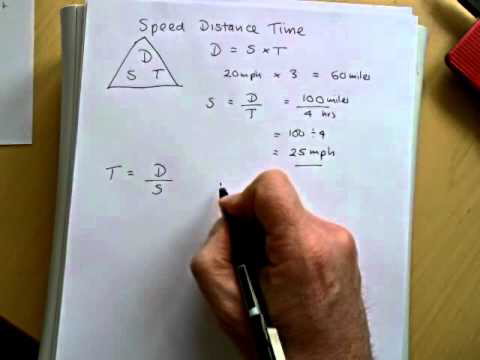 Speed Distance Time
D
S T
D = S × T
20mph × 3 = 60miles
S = D/T = 100miles/4 hrs
= 100 ÷ 4
= 25mph
T = D/S